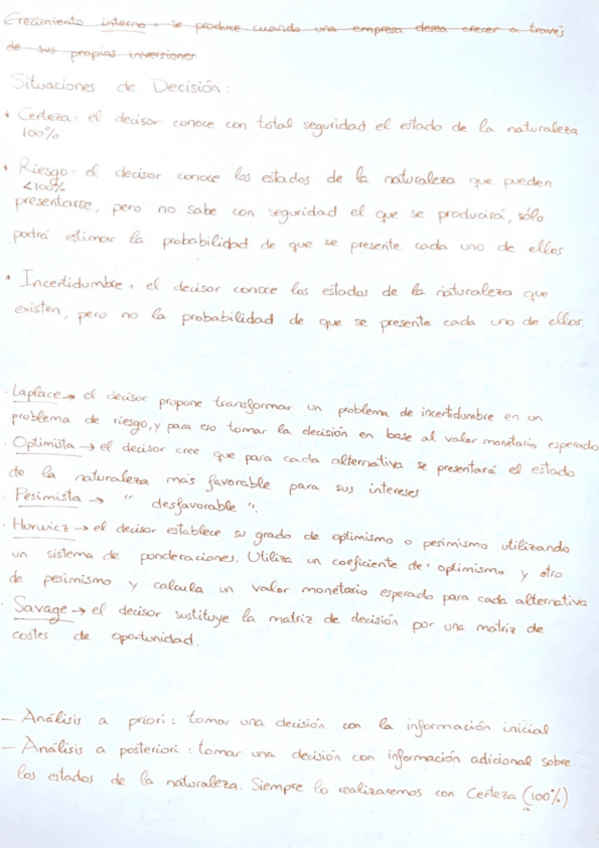 Crecimiento interno = se produce cuando una empresa desea crecer a través
de sus propias inversiones
Situaciones de Decisión:
* Certeza = el decisor conoce con total seguridad el estado de la naturaleza
100%
* Riesgo = el decisor conoce los estados de la naturaleza que pueden
<100%
presentarse, pero no sabe con seguridad el que se producirá, sólo
podrá estimar la probabilidad de que se presente cada uno de ellos
* Incertidumbre = el decisor conoce los estados de la naturaleza que
existen, pero no la probabilidad de que se presente cada uno de ellos.
· Laplace → el decisor propone transformar un problema de incertidumbre en un
problema de riesgo, y para eso tomar la decisión en base al valor monetario esperado
· Optimista → el decisor cree que para cada alternativa se presentará el estado
de la naturaleza más favorable para sus intereses
· Pesimista → " desfavorable ".
· Hurwicz → el decisor establece su grado de optimismo o pesimismo utilizando
un sistema de ponderaciones. Utiliza un coeficiente de optimismo y otro
de pesimismo y calcula un valor monetario esperado para cada alternativa
· Savage → el decisor sustituye la matriz de decisión por una matriz de
costes de oportunidad.
— Análisis a priori: tomar una decisión con la información inicial
— Análisis a posteriori: tomar una decisión con información adicional sobre
los estados de la naturaleza. Siempre lo realizaremos con Certeza (100%)